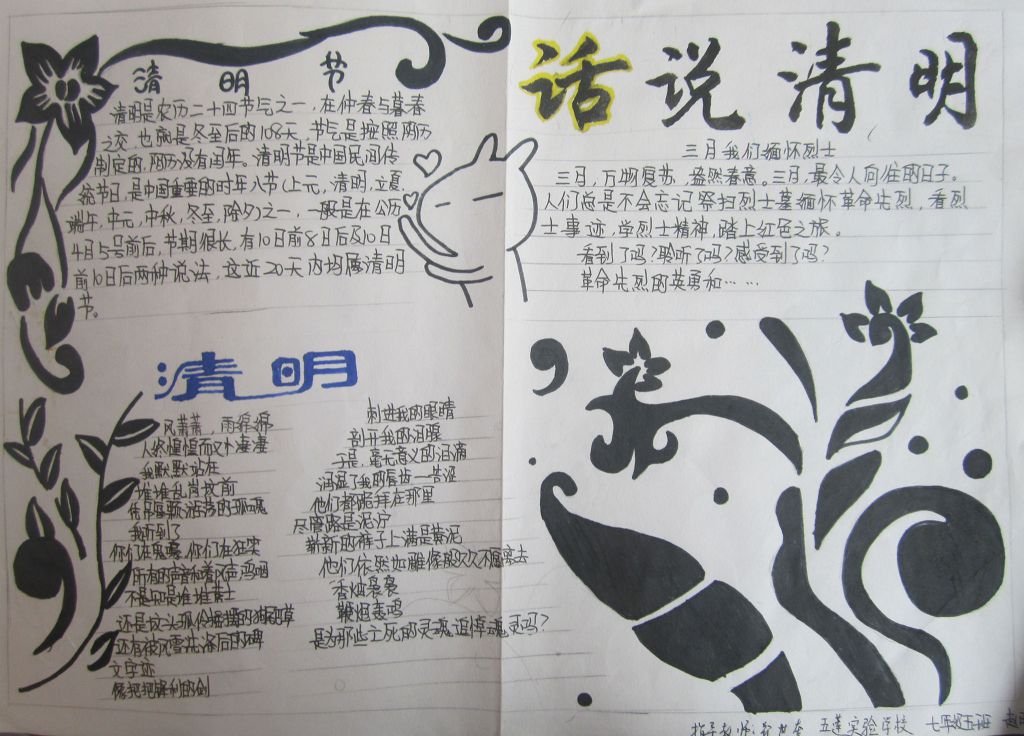 清明节
清明是农历二十四节气之一，在仲春与暮春
之交，也就是冬至后的108天，节气是按照阳历
制定的，阳历没有闰年。清明节是中国民间传
统节日，是中国重要的时年八节（上元，清明，立夏，
端午，中元，中秋，冬至，除夕）之一，一般是在公历
4月5号前后，节期很长，有10日前8日后及10日
前10日后两种说法，这近20天内均属清明
节。
清明
风萧萧，雨
人然
我默默站在
堆堆乱肖坟前
的孤魂
我听到了
你们在哀嚎，你们在狂笑
所有的声音和着风声鸿鸣
不是只是堆堆黄土
还是坟头孤伶
还有被风雪洗涤后的碑
文字迹
像把把犀利的剑
刺进我的眼睛
剖开我的泪腺
于是，毫无意义的泪滴
了我的唇齿一苦涩
他们都跪拜在那里
尽管路是泥泞
崭新的裤子上满是黄泥
他们依然如雕像般久久不愿离去
香烟袅袅
鞭炮轰鸣
是为那些亡死的灵魂追悼魂灵吗？
话说清明
三月我们缅怀烈士
三月，万物复苏，盎然春意。三月，最令人向往的日子。
人们总是不会忘记祭扫烈士墓缅怀革命先烈，看烈
士事迹，学烈士精神，踏上红色之旅。
看到了吗？聆听了吗？感受到了吗？
革命先烈的英勇和……
指导教师： 五莲实验学校 七年级五班